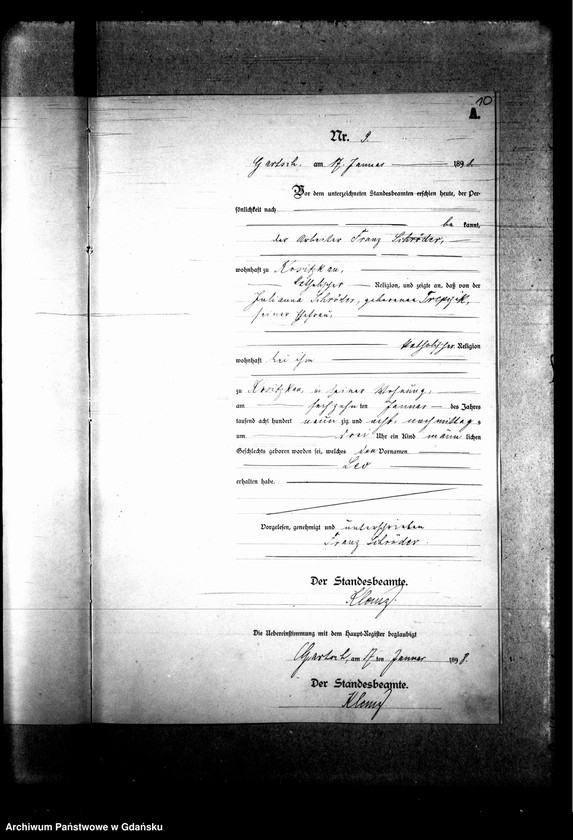 10
A.
Nr. 9.
Gartsch, am 17. Januar 1898.
Vor dem unterzeichneten Standesbeamten erschien heute, der Per-
sönlichkeit nach
be kannt,
der Arbeiter Franz Schröder,
wohnhaft zu Kositzkau,
katholischer Religion, und zeigte an, daß von der
Julianna Schröder, geborenen
seiner Ehefrau,
katholischer Religion
wohnhaft bei ihm
zu Kositzkau, in seiner Wohnung,
am sechzehn ten Januar des Jahres
tausend acht hundert neun zig und acht, nachmittags
um drei Uhr ein Kind männ lichen
Geschlechts geboren worden sei, welches den Vornamen
Leo
erhalten habe.
Vorgelesen, genehmigt und unterschrieben
Franz Schröder.
Der Standesbeamte.
Die Uebereinstimmung mit dem Haupt-Register beglaubigt
Gartsch, am 17 ten Januar 1898.
Der Standesbeamte.
Archiwum Państwowe w Gdańsku